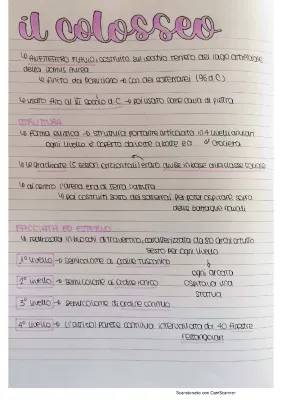 il colosseo
↳ ANFITEATRO FLAVIO, costruito sul vecchio terreno del lago artificiale
della Domus Aurea
↳ finito da Domiziano → con dei sotterranei (96 d.C.)
↳ usato fino al VI secolo d.C → poi usato come cava di pietra
STRUTTURA
↳ forma ellittica → struttura portante articolata in 4 livelli anulari
ogni livello è coperto da volte a botte e a crociera
↳ le gradinate (5 settori circolari) erano divise in base alla classe sociale
↳ al centro l'arena era di terra battuta
↳ poi costruiti sotto dei sotterranei per poter ospitare
delle battaglie navali
FACCIATA ED ESTERNO
↳ realizzata in blocchi di travertino, caratterizzata da 80 archi a tutto
sesto per ogni livello
1° livello → semicolonne di ordine tuscanico
2° livello → semicolonne di ordine ionico
3° livello → semicolonne di ordine corinzio
ogni arcata
ospitava una
statua
4° livello → (attico) parete continua intervallata da 40 finestre
rettangolari
Scansionato con CamScanner